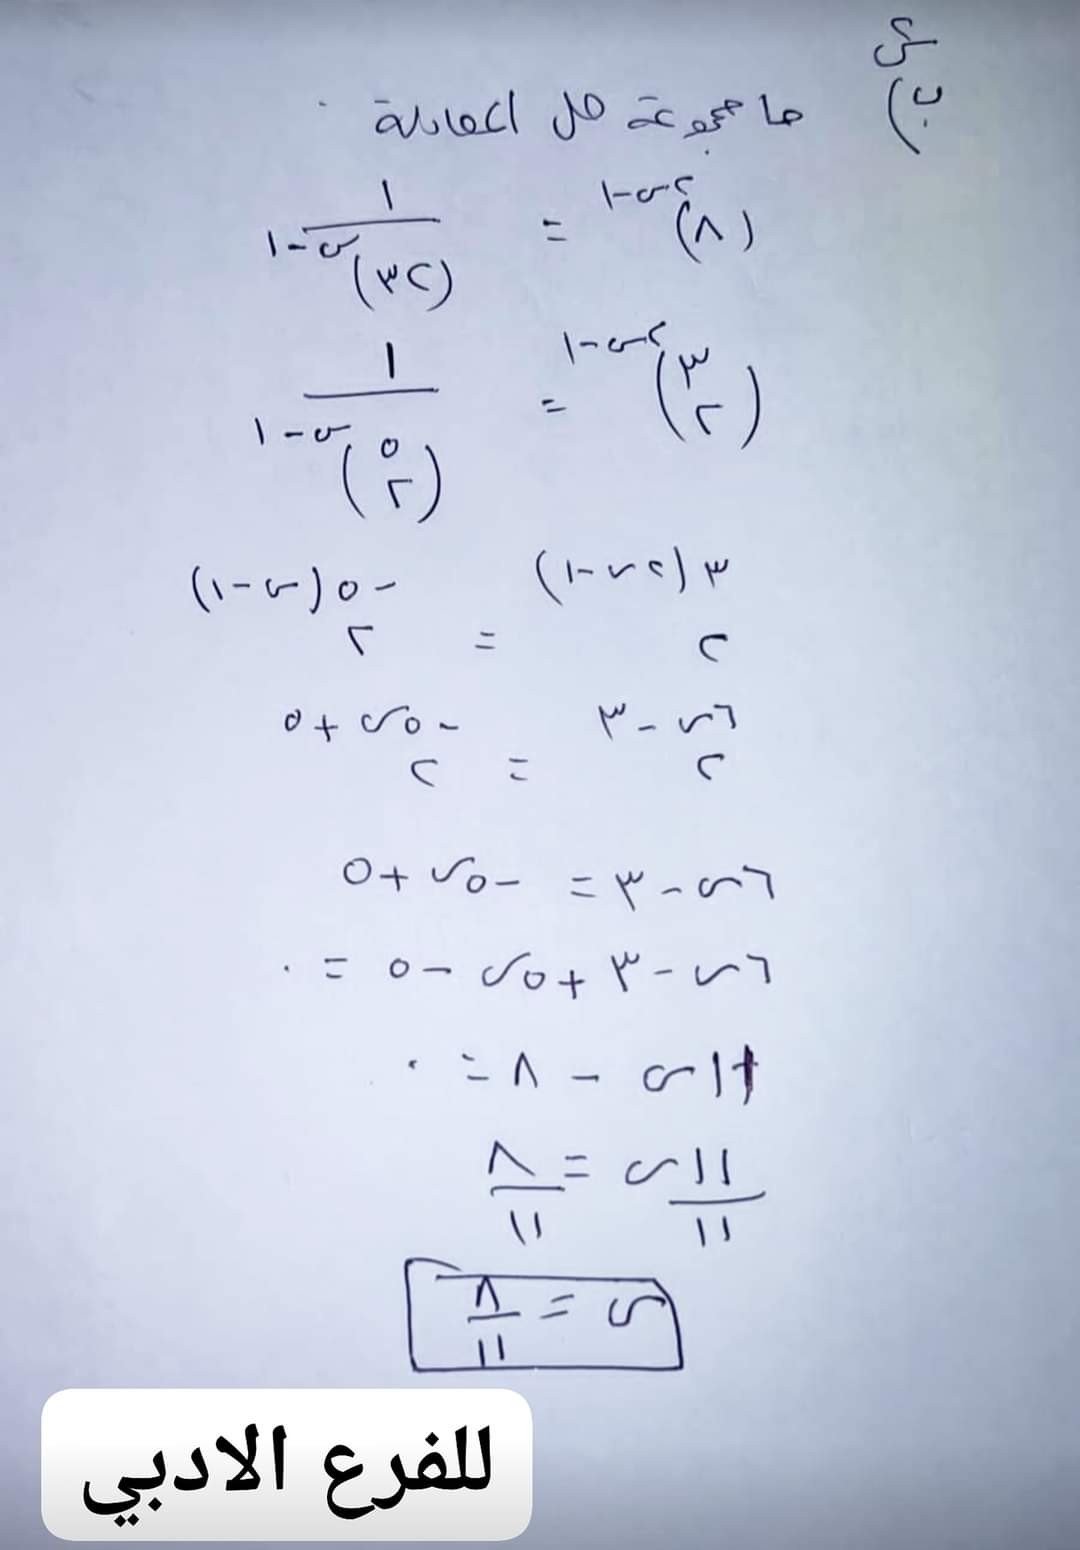 س
ب)
ما مجموعة حل المعادلة
(٨)^٢س-١ = ١/(٣٢)^س-١
(٢^٣)^٢س-١ = ١/(٢^٥)^س-١
٢^٣(٢س-١) = ٢^-٥(س-١)
٢^٦س-٣ = ٢^-٥س+٥
٦س-٣ = -٥س+٥
٦س-٣+٥س-٥ = ٠
+١١س-٨ = ٠
١١س/١١ = ٨/١١
س = ٨/١١
للفرع الادبي